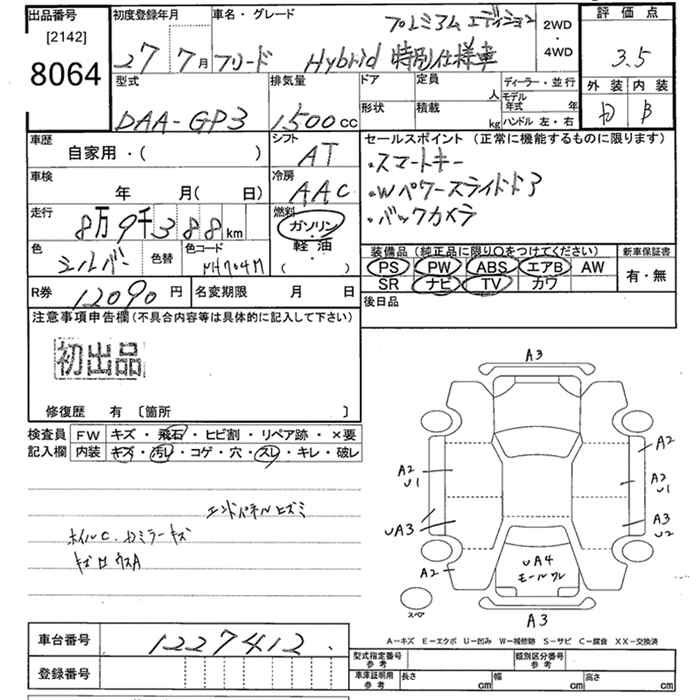 出品番号
[2142]
8064
初度登録年月
27 7月
車名・グレード
フリード Hybrid 特別仕様車
プレミアム エディション
2WD
・
4WD
評価点
3.5
外装 内装
B
型式
DAA-GP3
排気量
1500cc
ドア 定員 人
形状 積載 kg
ディーラー・並行
モデル年式 年
ハンドル 左・右
車歴
自家用・( )
シフト
AT
車検
年 月( 日)
冷房
AAC
走行
8万9千388km
燃料
ガソリン
・
軽油
( )
色
シルバー
色替
色コード
NH704M
セールスポイント (正常に機能するものに限ります)
・スマートキー
・Wパワースライドドア
・バックカメラ
装備品 (純正品に限り○をつけてください)
PS PW ABS エアB AW
SR ナビ TV カワ
新車保証書
有・無
R券
12090円
名変期限 月 日
後日品
注意事項申告欄 (不具合内容等は具体的に記入して下さい)
初出品
修復歴 有 〔箇所 〕
検査員記入欄
FW キズ・飛石・ヒビ割・リペア跡・×要
内装 キズ・汚レ・コゲ・穴・スレ・キレ・破レ
エンドパネルヒズミ
ホイルC. ミラーキズ
A3
A2
U1
A2
A2
U1
UA3
A3
U2
A2
UA4
モールワレ
スペア
A3
A-キズ E-エクボ U-凹み W-補修跡 S-サビ C-腐食 XX-交換済
車台番号
1227412
登録番号
型式指定番号 参考
類別区分番号 参考
車庫証明用 参考
長さ cm
幅 cm
高さ cm